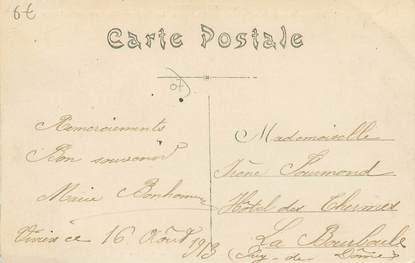 6€
Carte Postale
Remerciements
Bon souvenir
Marie Bonhomme
ce 16 Août 1913
Mademoiselle
Irène
Hôtel des Thermes
La Bourboule
(Puy-de-Dôme)